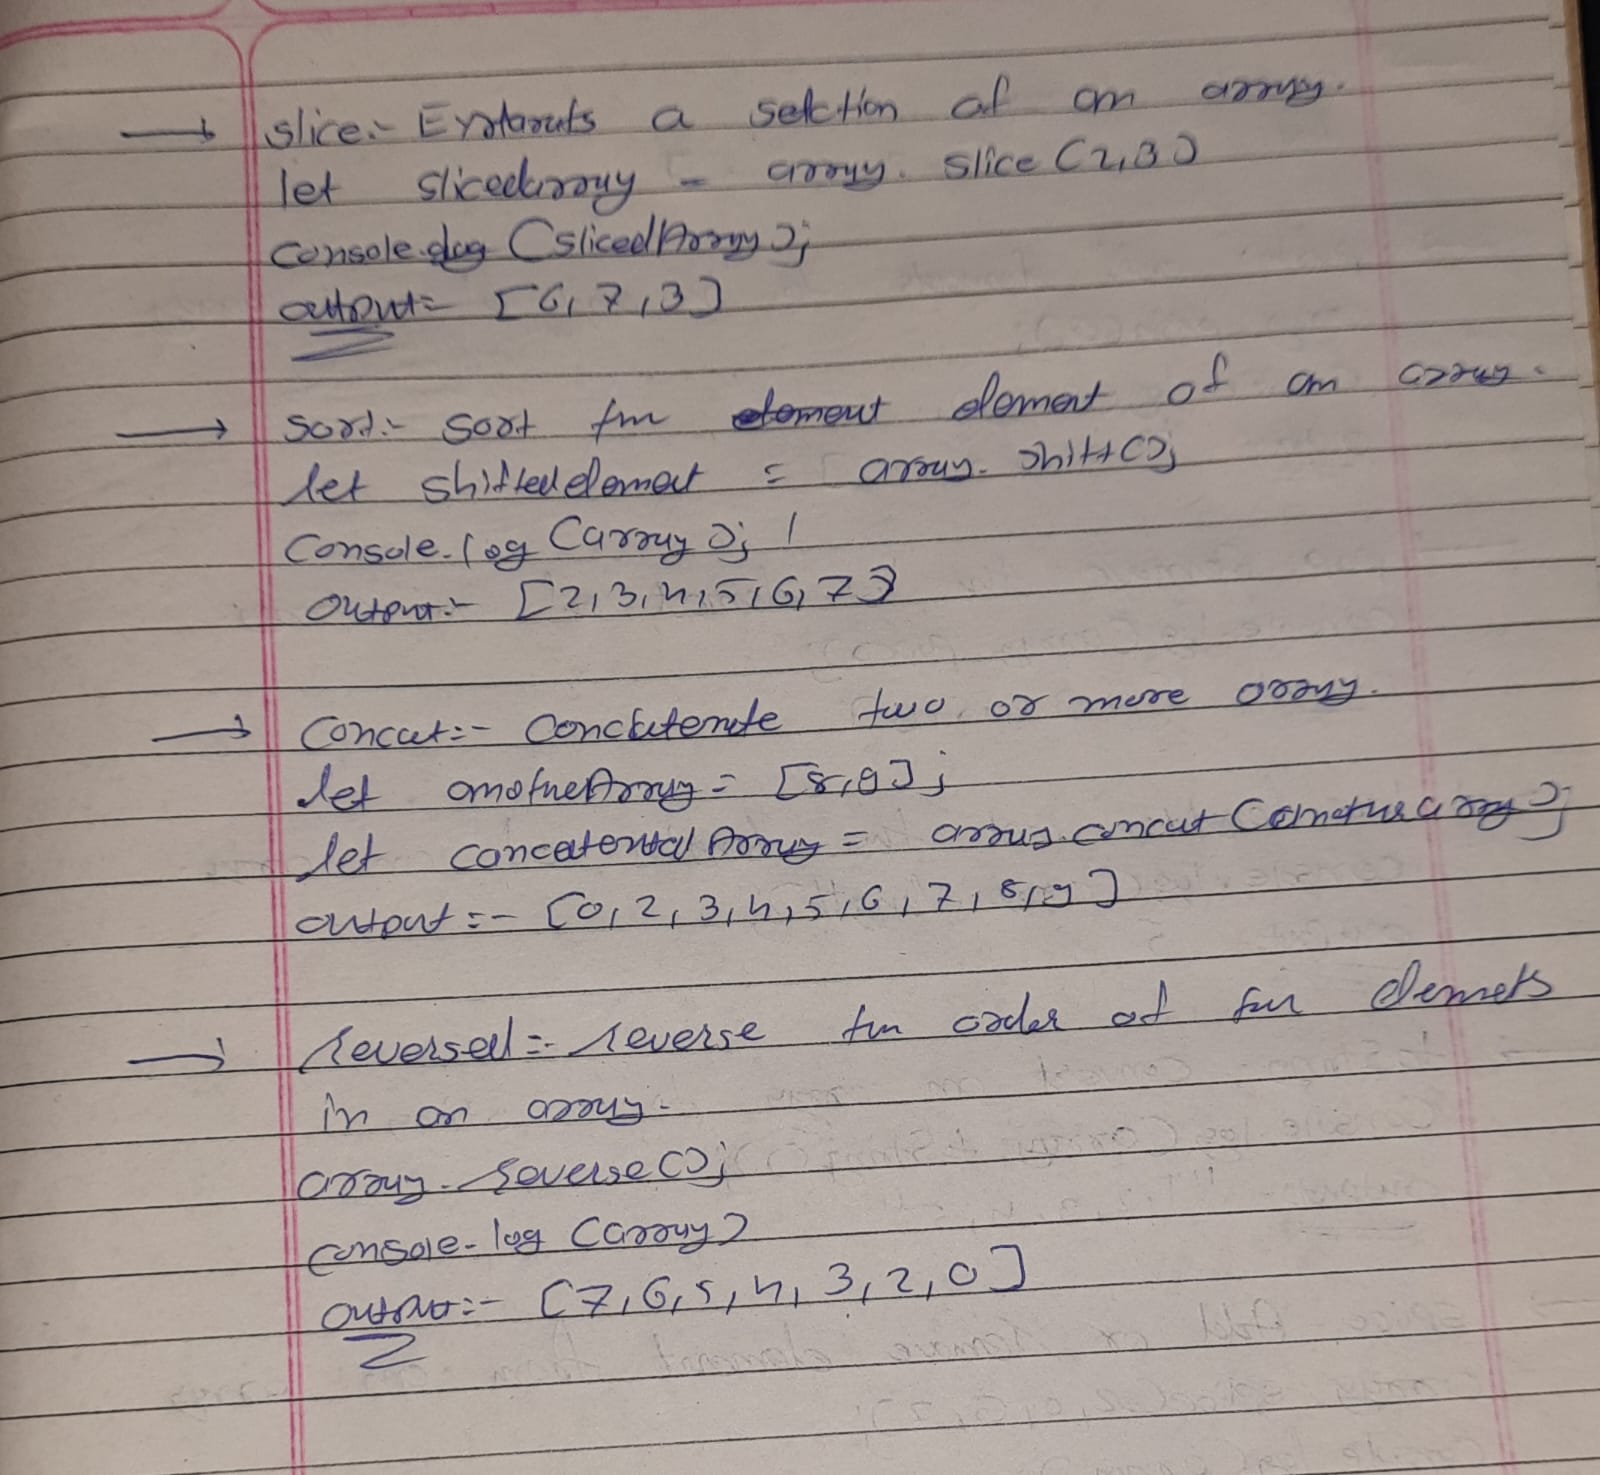 → slice:- Extaruts a selction of an array.
let slicedarray = array. slice (2,3)
console.log (slicedArray);
output= [6,7,3]
→ sort:- sort the element of an array.
let shiftedelement = array. shift();
Console.log (array);
Output:- [2,3,4,5,6,7]
→ Concat:- Concatenate two or more array.
let anotheArray = [8,9];
let concatental Array = array.concat (anothearray);
output:- [0,2,3,4,5,6,7,8,9]
→ reversed:- reverse the order of the elemets
in an array.
array.reverse();
console.log (array)
output:- [7,6,5,4,3,2,0]